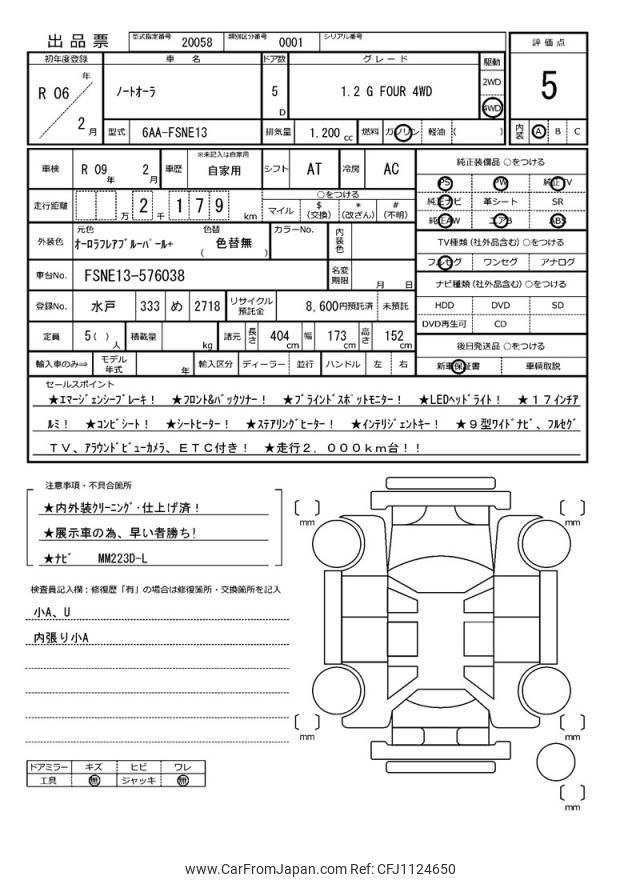 出品票 型式指定番号 20058 類別区分番号 0001 シリアル番号 評価点
初年度登録 車名 ドア数 グレード 駆動
R 06 年 2 月 ノートオーラ 5 D 1.2 G FOUR 4WD 2WD 4WD 5
型式 6AA-FSNE13 排気量 1,200 cc 燃料 ガソリン 軽油 ( ) 内装 A B C
車検 R 09 年 2 月 車歴 ※未記入は自家用 自家用 シフト AT 冷房 AC 純正装備品 ○をつける
PS PW 純正TV
走行距離 万 2 千 1 7 9 km ○をつける マイル $ (交換) * (改ざん) # (不明) 純正ナビ 革シート SR
純正AW エアB ABS
外装色 元色 オーロラフレアブルーパール+ 色替 ( 色替無 ) カラーNo. 内装色 TV種類 (社外品含む) ○をつける
フルセグ ワンセグ アナログ
車台No. FSNE13-576038 名変期限 月 日 ナビ種類 (社外品含む) ○をつける
登録No. 水戸 333 め 2718 リサイクル預託金 8,600円預託済 未預託 HDD DVD SD
DVD再生可 CD
定員 5 ( ) 人 積載量 kg 諸元 長さ 404 cm 幅 173 cm 高さ 152 cm 後日発送品 ○をつける
輸入車のみ⇒ モデル年式 年 輸入区分 ディーラー 並行 ハンドル 左 右 新車保証書 車輌取説
セールスポイント
★エマージェンシーブレーキ! ★フロント&バックソナー! ★ブラインドスポットモニター! ★LEDヘッドライト! ★17インチア
ルミ! ★コンビシート! ★シートヒーター! ★ステアリングヒーター! ★インテリジェントキー! ★9型ワイドナビ、フルセグ
TV、アラウンドビューカメラ、ETC付き! ★走行2,000km台!!
注意事項・不具合箇所
★内外装クリーニング・仕上げ済!
★展示車の為、早い者勝ち!
★ナビ MM223D-L
検査員記入欄:修復歴「有」の場合は修復箇所・交換箇所を記入
小A、U
内張り小A
ドアミラー キズ ヒビ ワレ
工具 無 ジャッキ 無
mm
mm
mm
mm
mm
www.CarFromJapan.com Ref: CFJ1124650